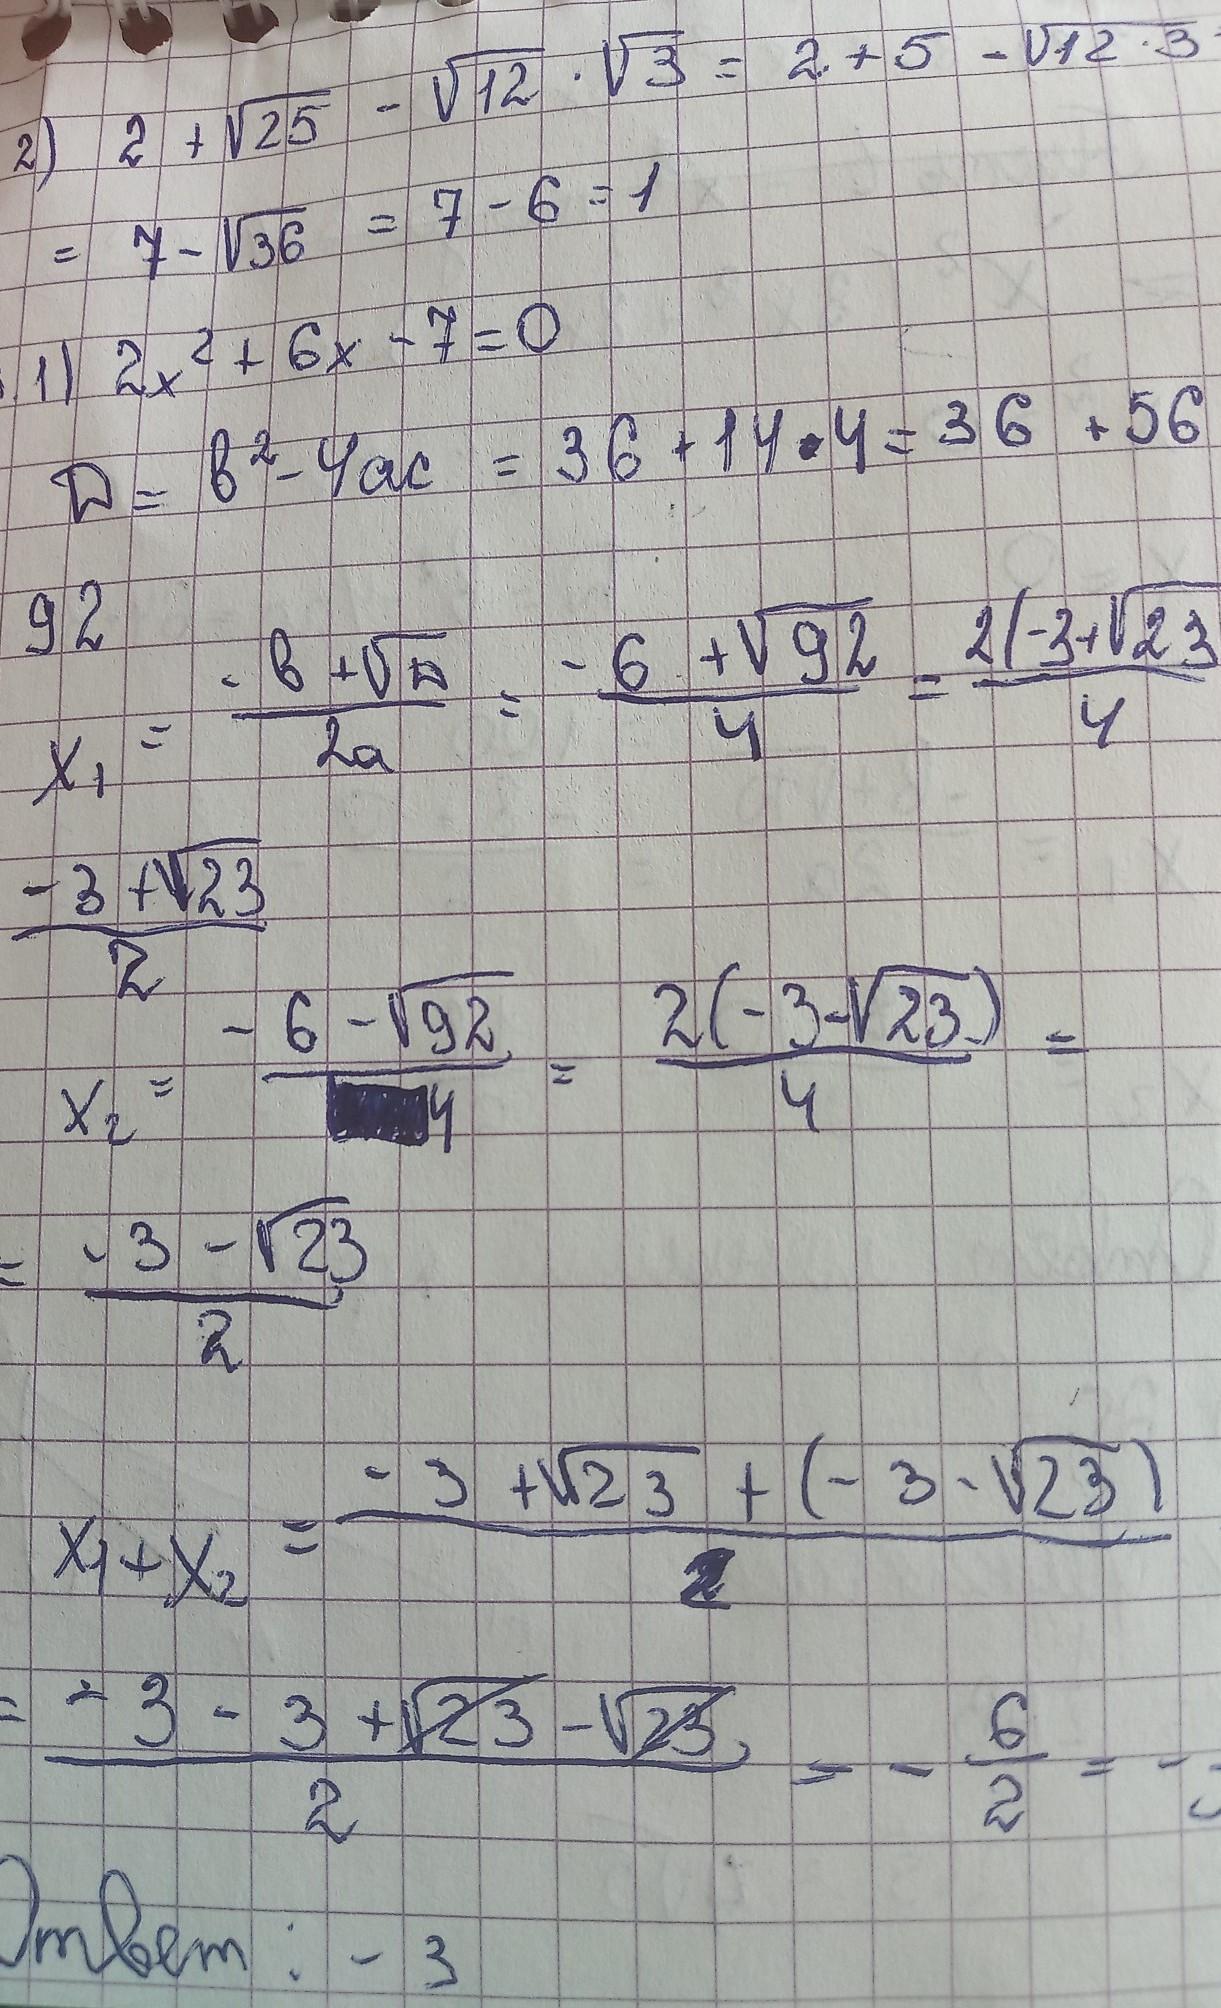 2) 2 + √25 - √12 · √3 = 2 + 5 - √12 · 3
= 7 - √36 = 7 - 6 = 1
1) 2x² + 6x - 7 = 0
D = b² - 4ac = 36 + 14 · 4 = 36 + 56
92
x₁ = (-b + √D)/2a = (-6 + √92)/4 = 2(-3 + √23)/4
(-3 + √23)/2
x₂ = (-6 - √92)/4 = 2(-3 - √23)/4 =
= (-3 - √23)/2
x₁ + x₂ = (-3 + √23 + (-3 - √23))/2
= (-3 - 3 + √23 - √23)/2 = - 6/2 = -3
Ответ: -3